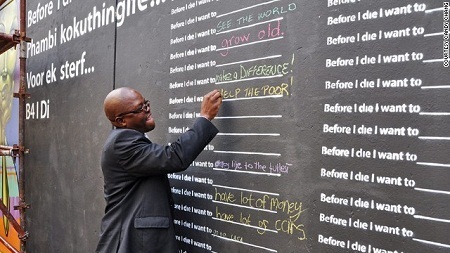 Before I
Phambi kokuthingife...
Voor ek sterf...
B4 I Di
Before I die I want to
Before I die I want to SEE THE WORLD
Before I die I want to grow old.
Before I die I want to
Before I die I want to Make a DIFFERENCE!
Before I die I want to HELP THE POOR
Before I die I want to
Before I die I want to
I want to
I want to enjoy life to the fullest
Before I die I want to
Before I die I want to have lots of money
Before I die I want to have lots of cars
Before I die I want to
Before I die I want to
Before I die I want to
Before I die I want to
Before I die I want to
Before I die I want to
Before I die I want to
Before I die I want to
Before I die I want to
Before I die I want to
Before I die I want to
Before I die I want to
Before I die I want to
Before I die I want to